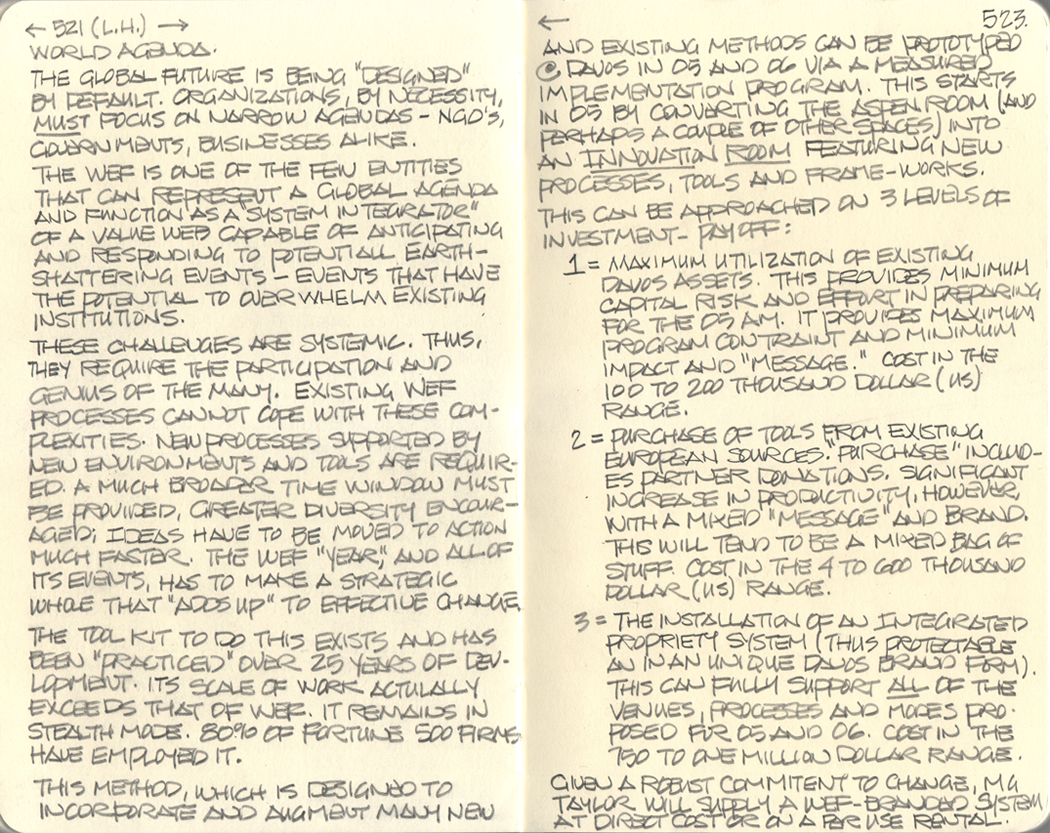 ← 521 (L.H.) →
WORLD AGENDA.
THE GLOBAL FUTURE IS BEING "DESIGNED"
BY DEFAULT. ORGANIZATIONS, BY NECESSITY,
MUST FOCUS ON NARROW AGENDAS - NGO'S,
GOVERNMENTS, BUSINESSES ALIKE.
THE WEF IS ONE OF THE FEW ENTITIES
THAT CAN REPRESENT A GLOBAL AGENDA
AND FUNCTION AS A "SYSTEM INTEGRATOR"
OF A VALUE WEB CAPABLE OF ANTICIPATING
AND RESPONDING TO POTENTIALL EARTH-
SHATTERING EVENTS - EVENTS THAT HAVE
THE POTENTIAL TO OVERWHELM EXISTING
INSTITUTIONS.
THESE CHALLENGES ARE SYSTEMIC. THUS,
THEY REQUIRE THE PARTICIPATION AND
GENIUS OF THE MANY. EXISTING WEF
PROCESSES CANNOT COPE WITH THESE COM-
PLEXITIES. NEW PROCESSES SUPPORTED BY
NEW ENVIRONMENTS AND TOOLS ARE REQUIR-
ED. A MUCH BROADER TIME WINDOW MUST
BE PROVIDED, GREATER DIVERSITY ENCOUR-
AGED; IDEAS HAVE TO BE MOVED TO ACTION
MUCH FASTER. THE WEF "YEAR," AND ALL OF
ITS EVENTS, HAS TO MAKE A STRATEGIC
WHOLE THAT "ADDS UP" TO EFFECTIVE CHANGE.
THE TOOL KIT TO DO THIS EXISTS AND HAS
BEEN "PRACTICED" OVER 25 YEARS OF DEV-
LOPMENT. ITS SCALE OF WORK ACTULALLY
EXCEEDS THAT OF WEF. IT REMAINS IN
STEALTH MODE. 80% OF FORTUNE 500 FIRMS
HAVE EMPLOYED IT.
THIS METHOD, WHICH IS DESIGNED TO
INCORPORATE AND AUGMENT MANY NEW
← 523.
AND EXISTING METHODS CAN BE PROTOTYPED
@ DAVOS IN 05 AND 06 VIA A MEASURED
IMPLEMENTATION PROGRAM. THIS STARTS
IN 05 BY CONVARTING THE ASPEN ROOM (AND
PERHAPS A COUPLE OF OTHER SPACES) INTO
AN INNOVATION ROOM FEATURING NEW
PROCESSES, TOOLS AND FRAME-WORKS.
THIS CAN BE APPROACHED ON 3 LEVELS OF
INVESTMENT- PAYOFF:
1 = MAXIMUM UTILIZATION OF EXISTING
DAVOS ASSETS. THIS PROVIDES MINIMUM
CAPITAL RISK AND EFFORT IN PREPARING
FOR THE 05 AM. IT PROVIDES MAXIMUM
PROGRAM CONTRAINT AND MINIMUM
IMPACT AND "MESSAGE." COST IN THE
100 TO 200 THOUSAND DOLLAR (US)
RANGE.
2 = PURCHASE OF TOOLS FROM EXISTING
EUROPEAN SOURCES. "PURCHASE" INCLUD-
ES PARTNER DONATIONS. SIGNIFICANT
INCREASE IN PRODUCTIVITY, HOWEVER,
WITH A MIXED "MESSAGE" AND BRAND.
THIS WILL TEND TO BE A MIXED BAG OF
STUFF. COST IN THE 4 TO 600 THOUSAND
DOLLAR (US) RANGE.
3 = THE INSTALLATION OF AN INTEGRATED
PROPRIETY SYSTEM (THUS PROTECTABLE
AN IN AN UNIQUE DAVOS BRAND FORM).
THIS CAN FULLY SUPPORT ALL OF THE
VENUES, PROCESSES AND MODES PRO-
POSED FUR 05 AND 06. COST IN THE
750 TO ONE MILLION DOLLAR RANGE.
GIVEN A ROBUST COMMITENT TO CHANGE, MG
TAYLOR WILL SUPPLY A WEF-BRANDED SYSTEM
AT DIRECT COST OR ON A PER USE RENTAL.